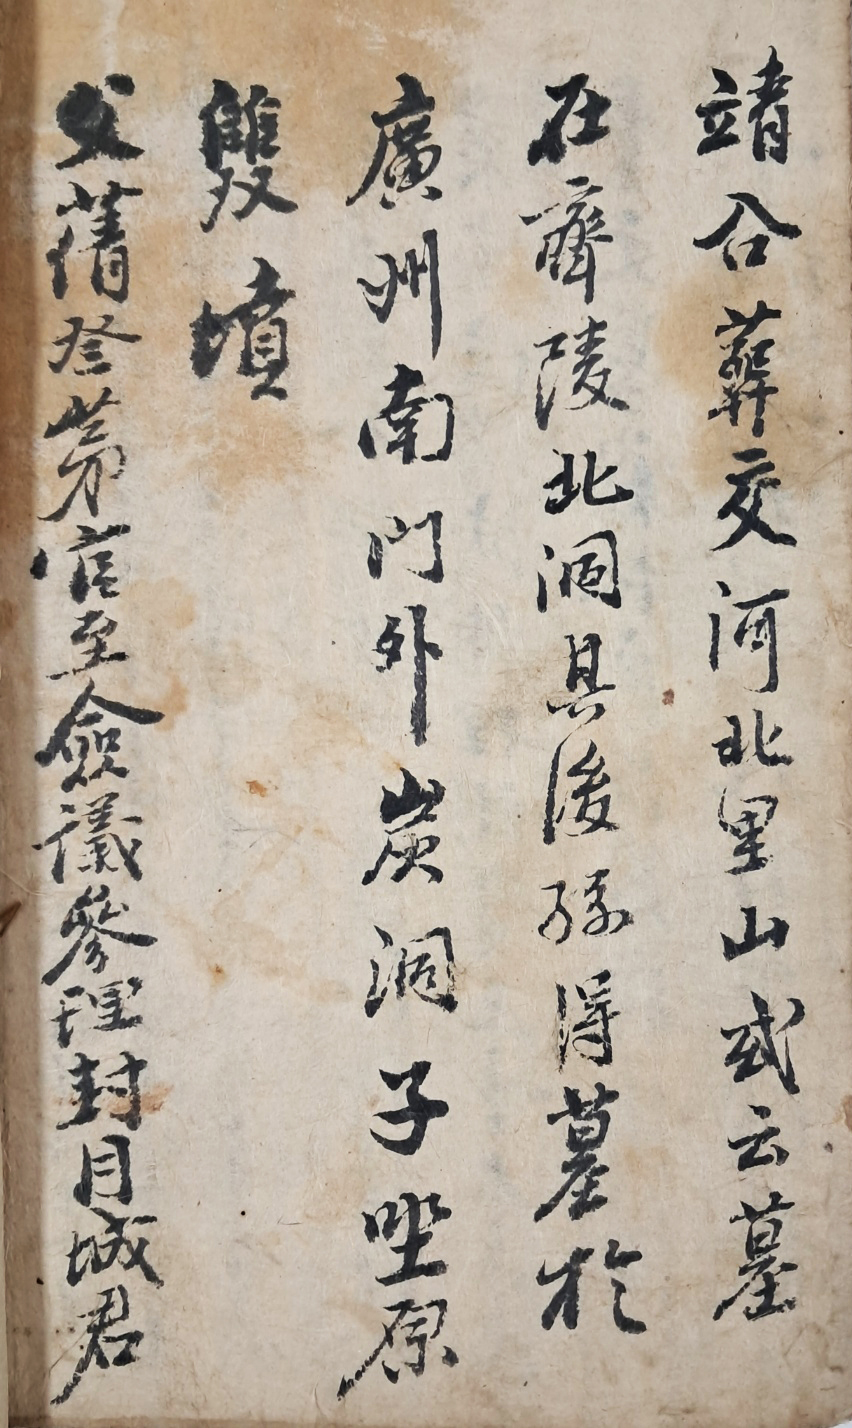 靖合葬交河北里山或云墓
在齊陵北洞其後孫得墓於
廣州南門外炭洞子坐原
雙墳
父蒨登第官至僉議參理封月城君